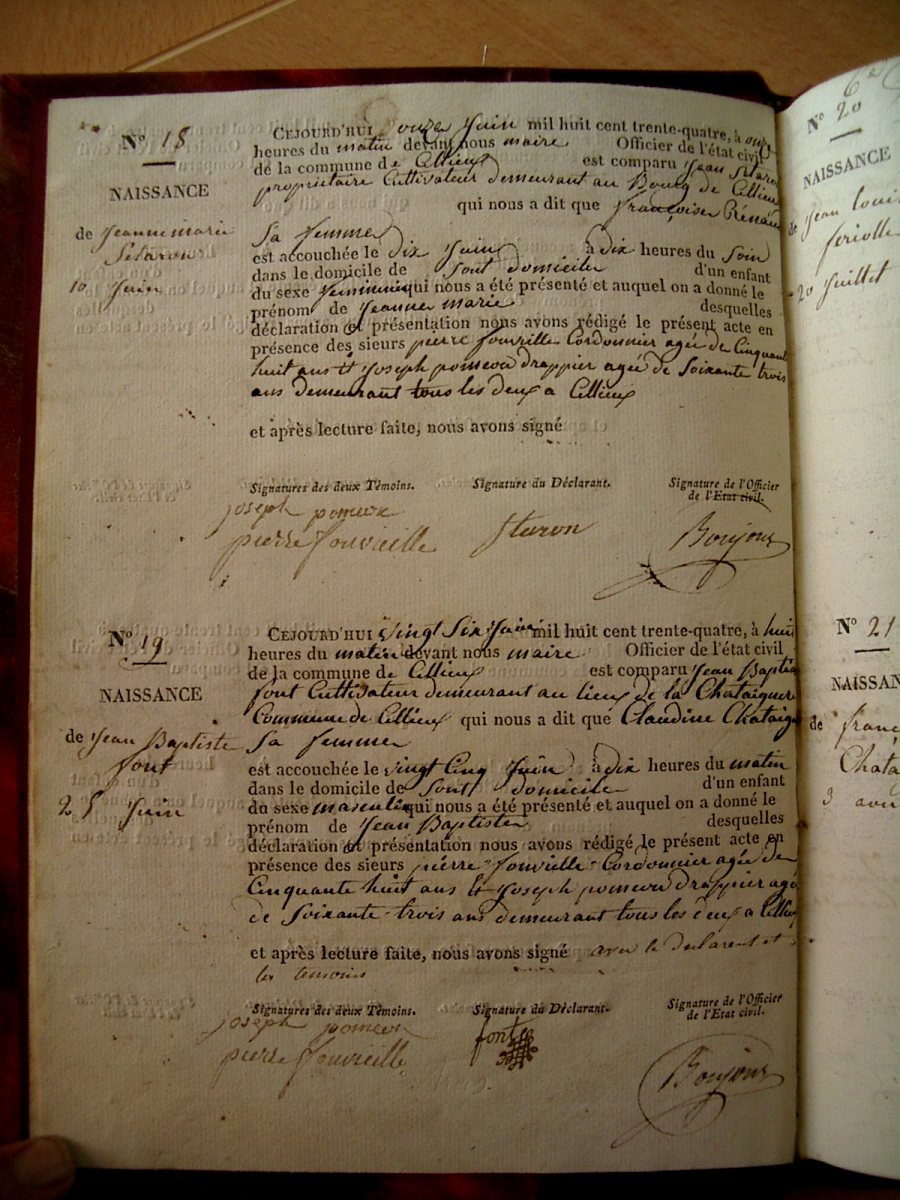 Nº 18
NAISSANCE
de Jeanne marie
Sitaron
10 Juin
CEJOURD'HUI onze Juin mil huit cent trente-quatre, à onze
heures du matin devant nous maire Officier de l'état civil
de la commune de Cellieu est comparu Jean
propriétaire Cultivateur demeurant au Bourg de Cellieu
qui nous a dit que françoise
Sa femme
est accouchée le dix Juin à dix heures du Soir
dans le domicile de Sont domicile d'un enfant
du sexe feminin qui nous a été présenté et auquel on a donné le
prénom de Jeanne marie desquelles
déclaration et présentation nous avons rédigé le présent acte en
présence des sieurs pierre fonvieille Cordonnier agée de Cinquante
huit ans et Joseph pomeon drappier agée de Soixante trois
ans demeurant tous les deux a Cellieu
et après lecture faite, nous avons signé
Signatures des deux Témoins. Signature du Déclarant. Signature de l'Officier
de l'Etat civil.
joseph pomeon
pierre fonvieille Bonjour
Nº 19
NAISSANCE
de Jean Baptiste
font
25 Juin
CEJOURD'HUI Vingt Six Juin mil huit cent trente-quatre, à huit
heures du matin devant nous maire Officier de l'état civil
de la commune de Cellieu est comparu Jean Baptiste
font Cultivateur demeurant au lieu de la Chataigner
Commune de Cellieu qui nous a dit que Claudine Chataig
Sa femme
est accouchée le vingt Cinq Juin à dix heures du matin
dans le domicile de Sont domicile d'un enfant
du sexe masculin qui nous a été présenté et auquel on a donné le
prénom de Jean Baptiste desquelles
déclaration et présentation nous avons rédigé le présent acte en
présence des sieurs pierre fonvieille Cordonnier agée de
Cinquante huit ans et Joseph pomeon drappier agé
de Soixante trois ans demeurant tous les deux a Cellieu
et après lecture faite, nous avons signé avec le declarent et
les temoins
Signatures des deux Témoins. Signature du Déclarant. Signature de l'Officier
de l'Etat civil.
joseph pomeon font
pierre fonvieille Bonjour
Nº 20
NAISSANCE
de Jean Loui
20 Juillet
Nº 21
NAISSAN
de franç
Chata
3